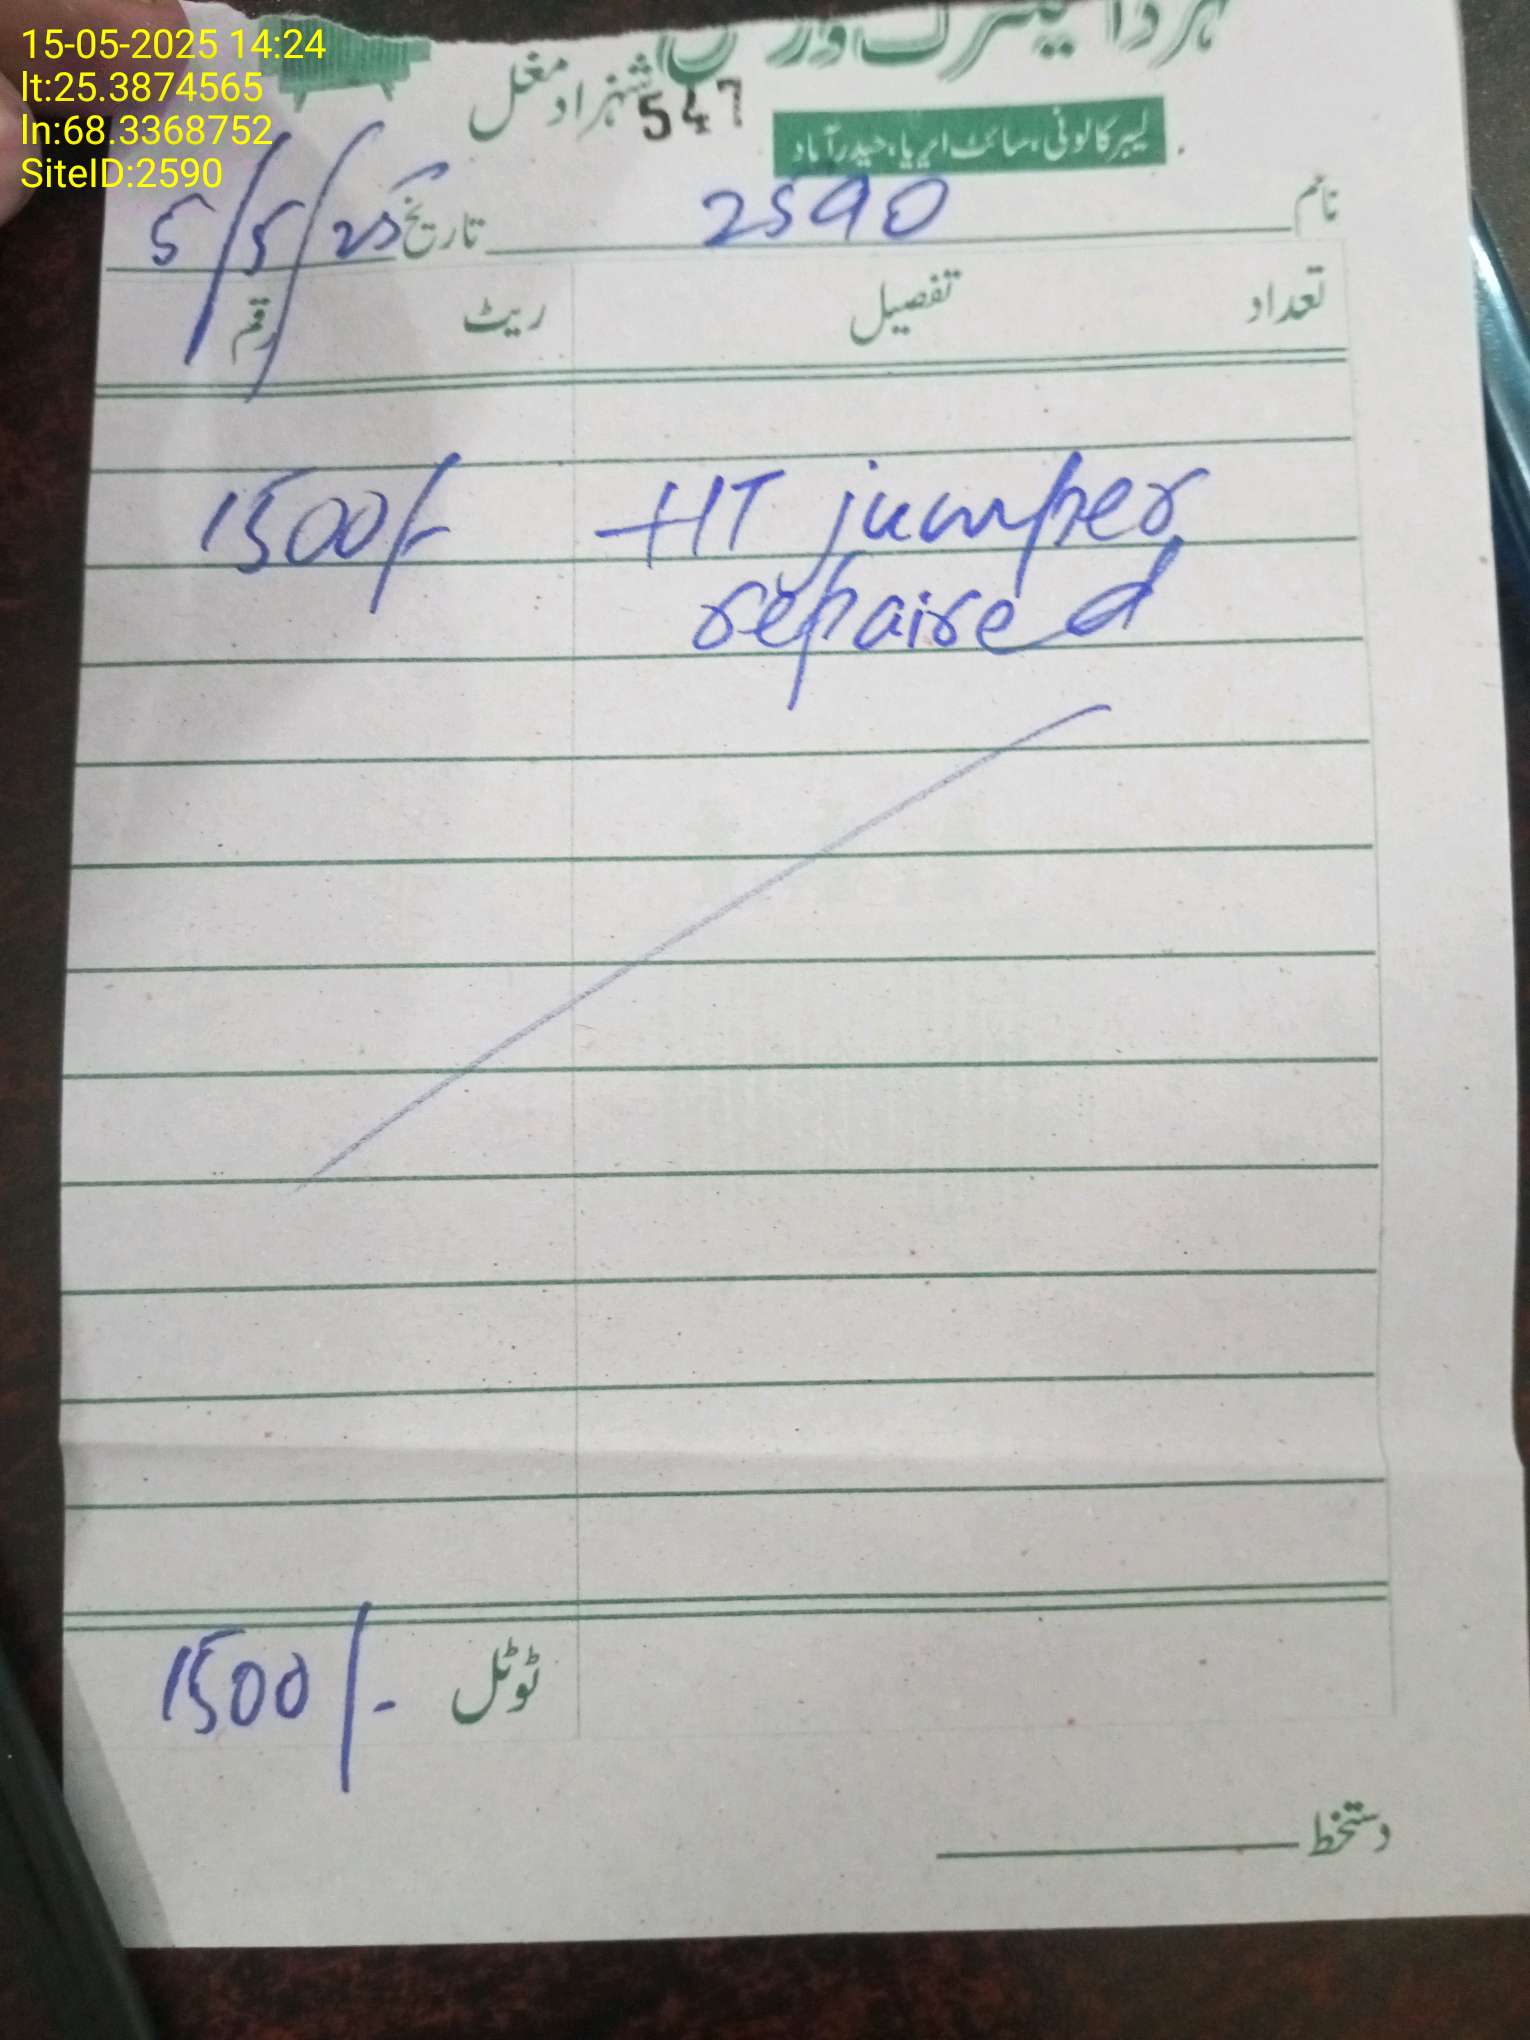 15-05-2025 14:24
lt:25.3874565
ln:68.3368752
SiteID:2590
شہزاد مغل
547
لیبر کالونی، سائٹ ایریا، حیدرآباد
نام 2590 تاریخ 5/5/25
تعداد تفصیل ریٹ رقم
HT jumper 1500/-
repaired
ٹوٹل 1500/-
دستخط